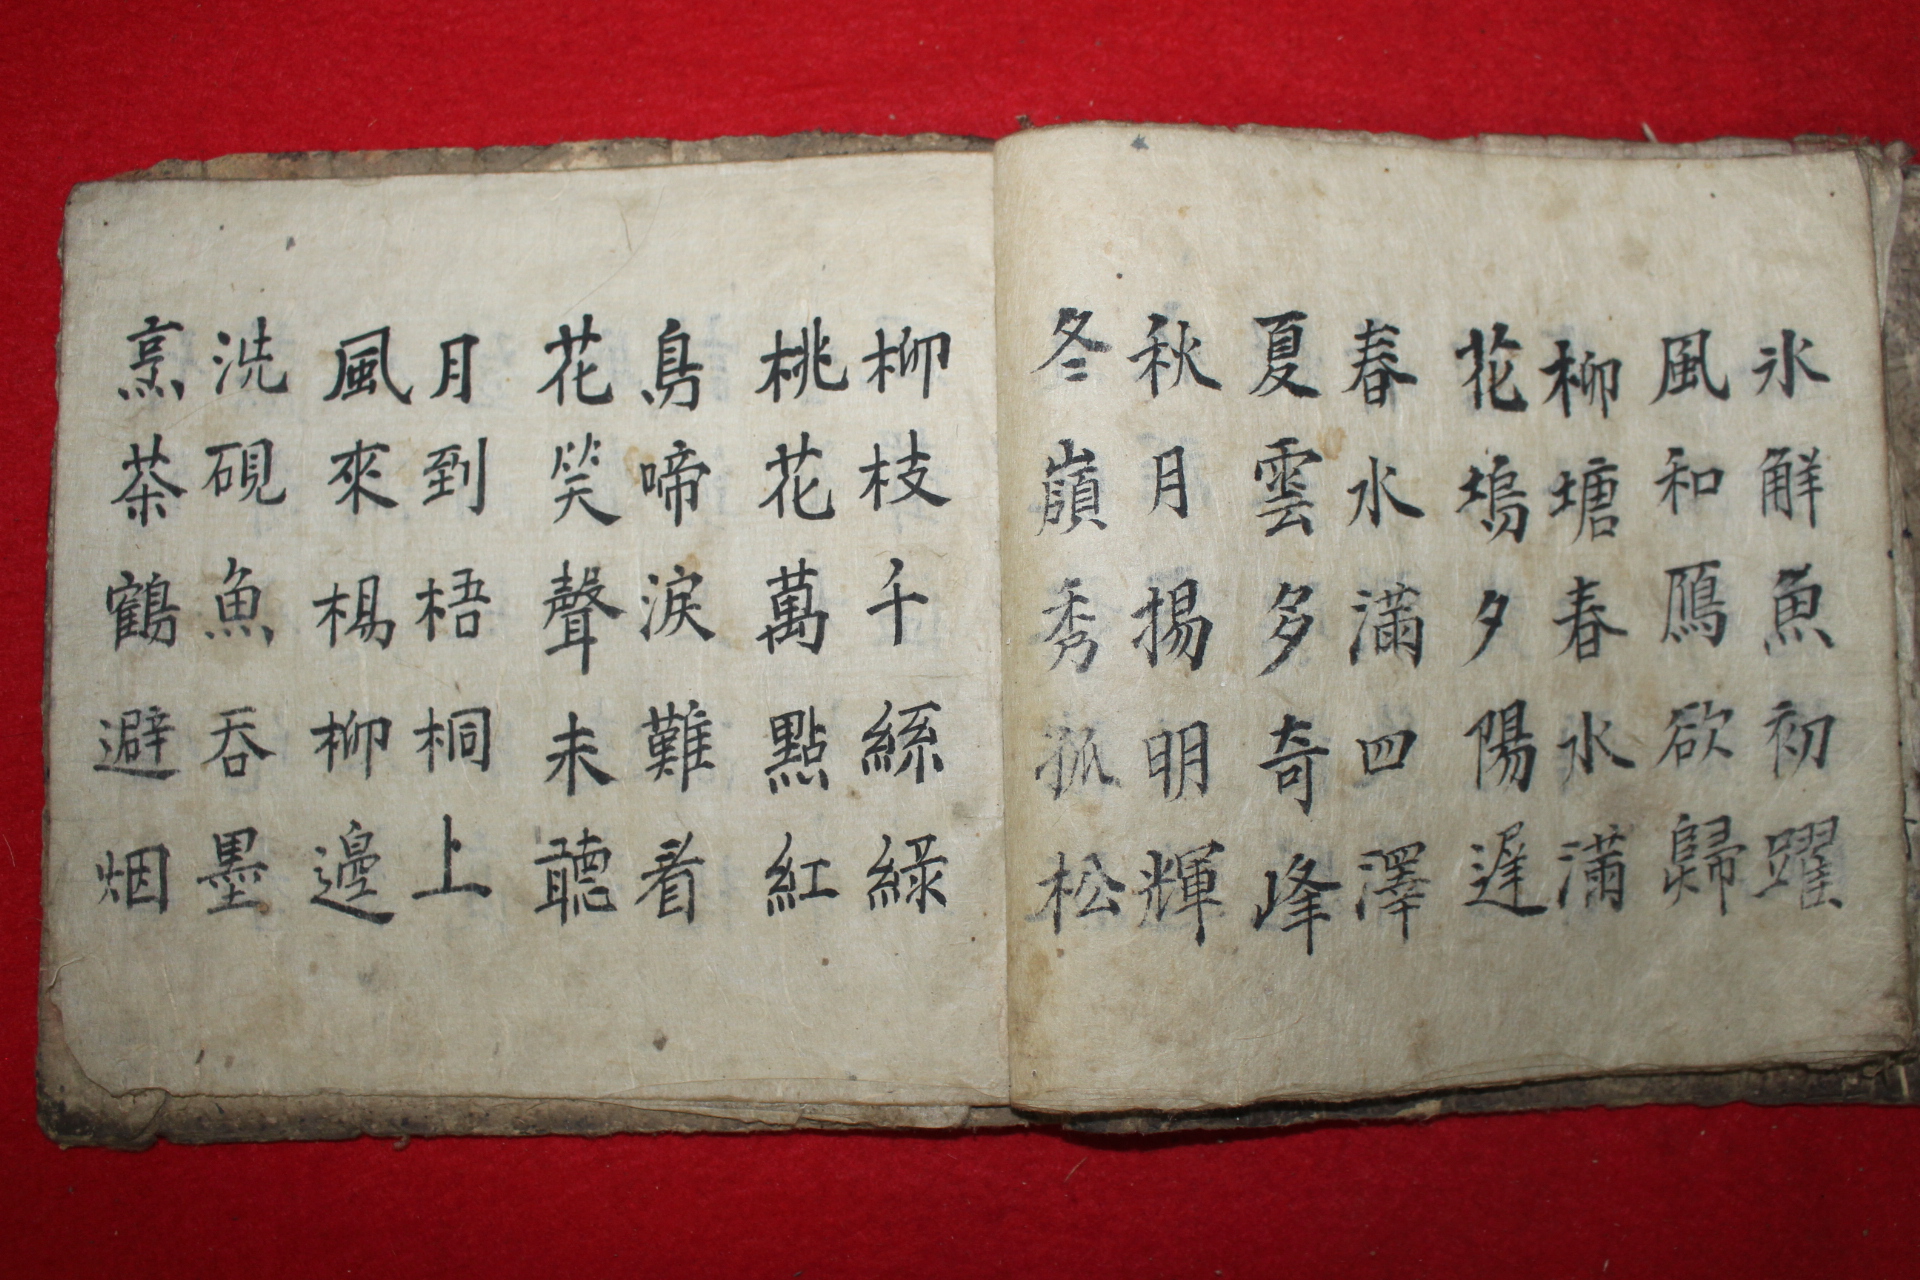 氷鮮魚初躍
風和鴈欲歸
柳塘春水滿
花塢夕陽遲
春水滿四澤
夏雲多奇峰
秋月揚明輝
冬嶺秀孤松
柳枝千絲綠
桃花萬點紅
鳥啼淚難看
花笑聲未聽
月到梧桐上
風來楊柳邊
洗硯魚吞墨
烹茶鶴避烟